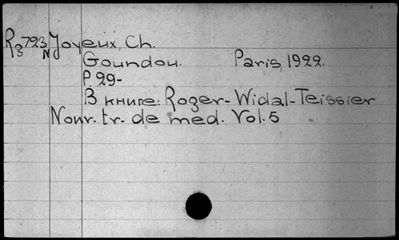 R3 723 Joyeux, Ch.
N
Goundou. Paris, 1922.
P. 29-
В книге: Roger-Widal-Teissier
Nouv. tr. de med. Vol. 5